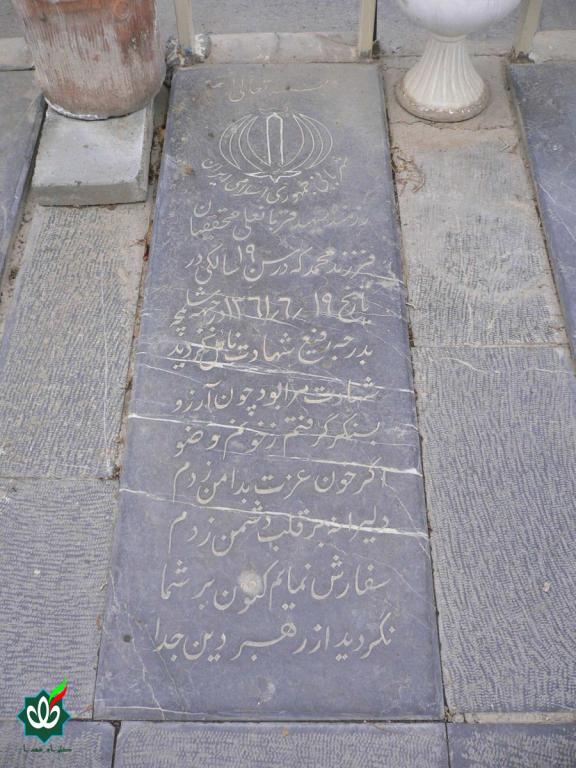 بسمه تعالی
قربانی جمهوری اسلامی ایران
رزمنده شهید قربانعلی محققیان
فرزند محمد که در سن ۱۹ سالگی در
تاریخ ۱۳۶۱٫۶٫۱۹ در جبهه شلمچه
بدرجه رفیع شهادت نائل گردید
شهادت مرا بود چون آرزو
بسنگر گرفتم ز خونم وضو
اگر خون عزت بدامن زدم
دلیرانه بر قلب دشمن زدم
سفارش نمایم کنون بر شما
نگردید از رهبر دین جدا